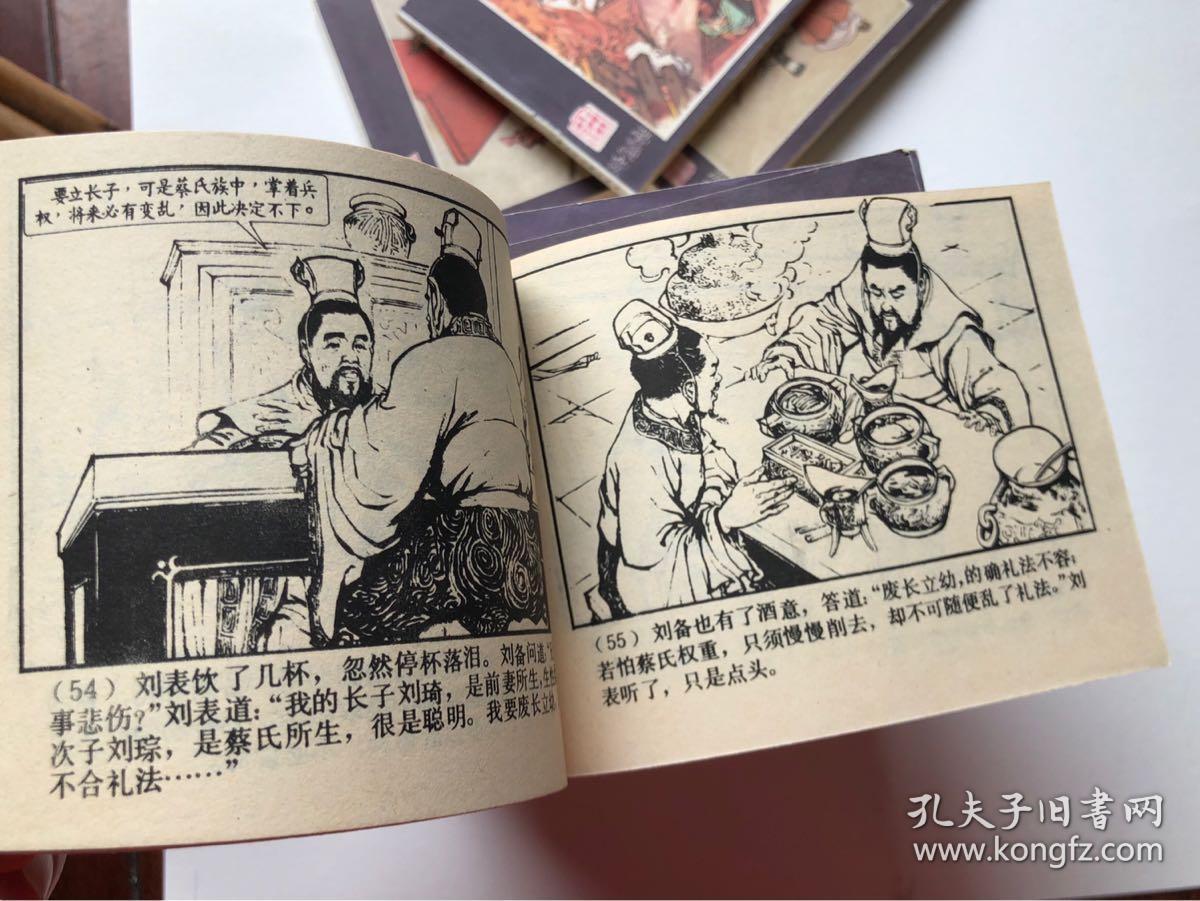 要立长子，可是蔡氏族中，掌着兵
权，将来必有变乱，因此决定不下。
（54）刘表饮了几杯，忽然停杯落泪。刘备问道：“
事悲伤？”刘表道：“我的长子刘琦，是前妻所生，生
次子刘琮，是蔡氏所生，很是聪明。我要废长立幼，
不合礼法……”
（55）刘备也有了酒意，答道：“废长立幼，的确礼法不容；
若怕蔡氏权重，只须慢慢削去，却不可随便乱了礼法。”刘
表听了，只是点头。
孔夫子旧书网
www.kongfz.com